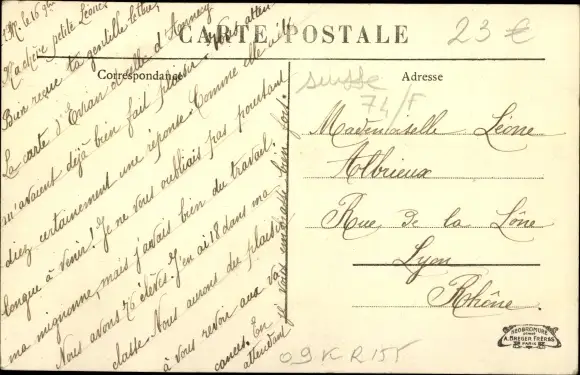 CARTE POSTALE
23 €
Correspondance
Adresse
le 16
Ma chère petite Léone
Bien reçue ta gentille lettre,
La carte d'Evian et celle d'Annecy
m'avaient déjà bien fait plaisir. Vous atten
diez certainement une réponse. Comme elle a été
longue à venir! Je ne vous oubliais pas pourtant
ma mignonne, mais j'avais bien du travail.
Nous avons 76 élèves. J'en ai 18 dans ma
classe. Nous aurons du plaisir
à vous revoir aux va
cances. En
attendant
je vous embrasse bien fort.
suisse
74/F
Mademoiselle Léone
Albrieux
Rue de la Lône
Lyon
Rhône.
09 K R 155
NEOBROMURE
A. BREGER FRÈRES
PARIS